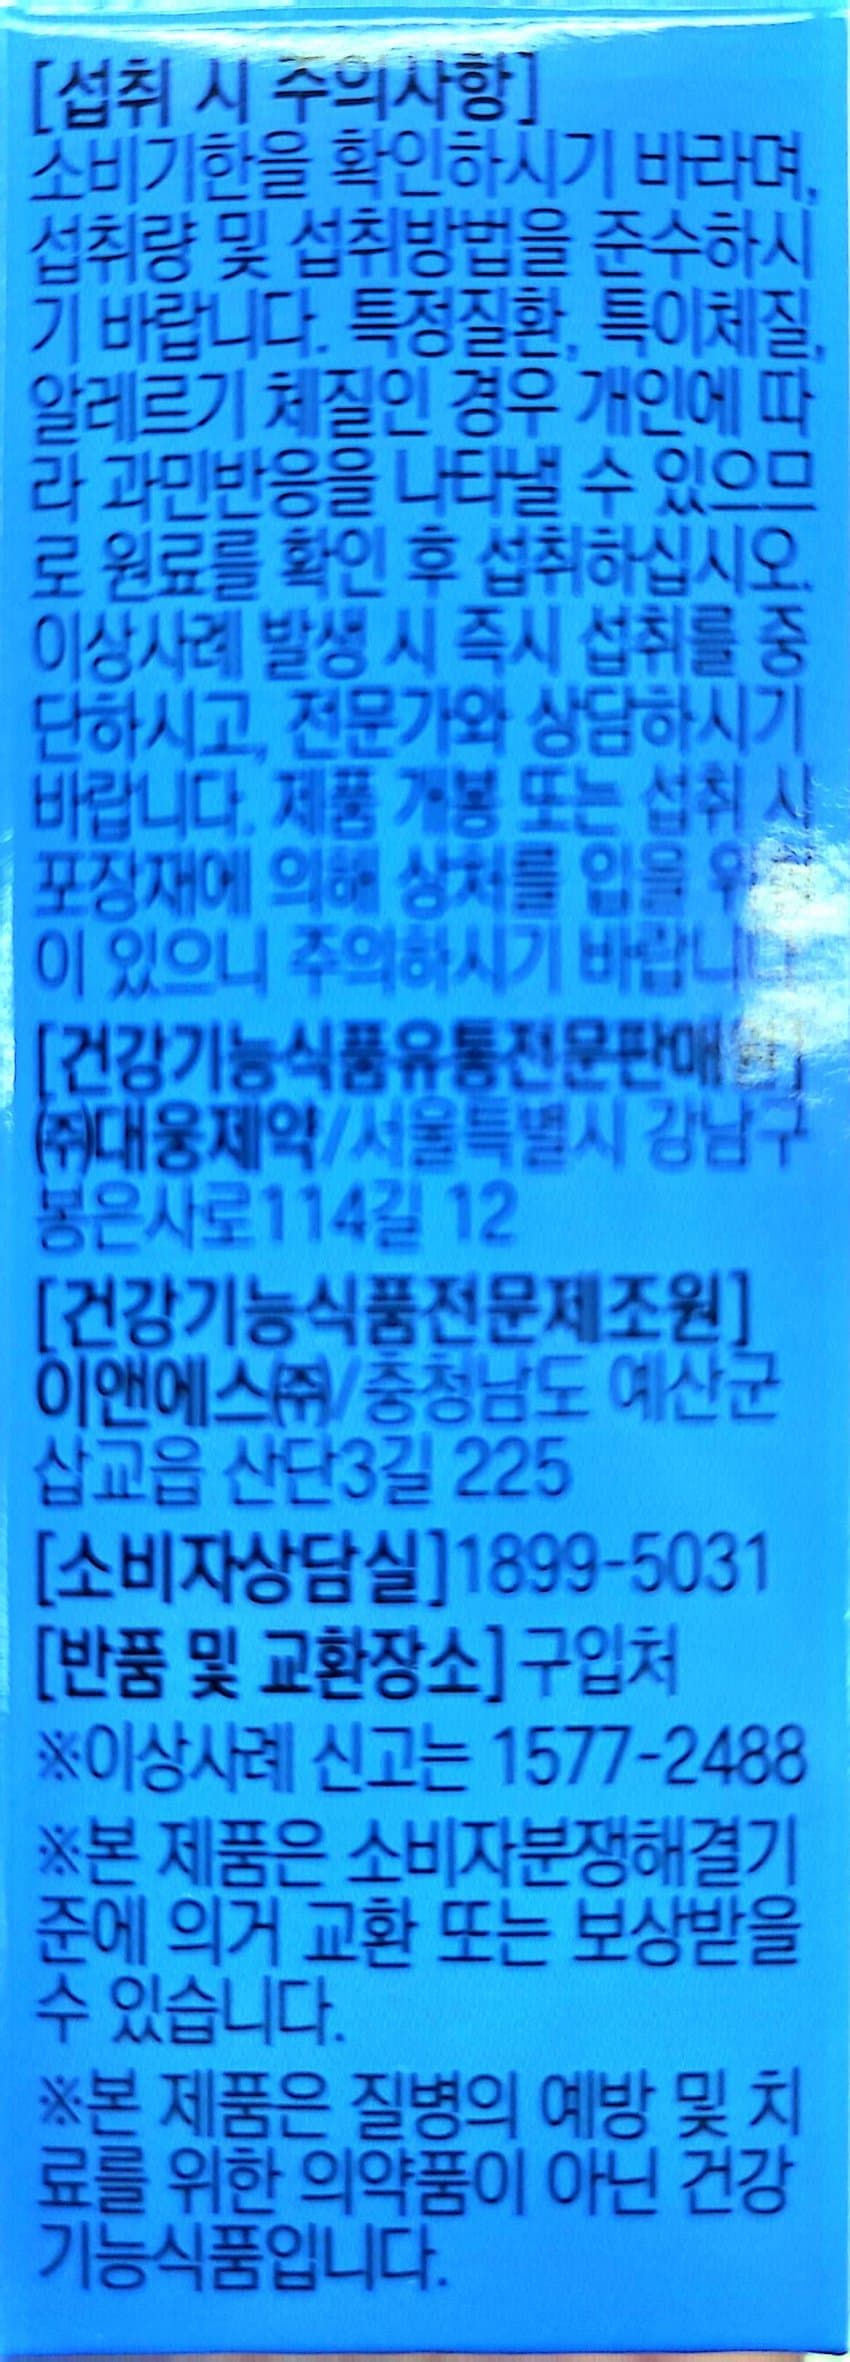 [섭취 시 주의사항]
소비기한을 확인하시기 바라며,
섭취량 및 섭취방법을 준수하시
기 바랍니다. 특정질환, 특이체질,
알레르기 체질인 경우 개인에 따
라 과민반응을 나타낼 수 있으므
로 원료를 확인 후 섭취하십시오.
이상사례 발생 시 즉시 섭취를 중
단하시고, 전문가와 상담하시기
바랍니다. 제품 개봉 또는 섭취 시
포장재에 의해 상처를 입을
이 있으니 주의하시기 바랍니다
[건강기능식품유통전문판매원]
㈜대웅제약/서울특별시 강남구
봉은사로114길 12
[건강기능식품전문제조원]
이앤에스㈜/충청남도 예산군
삽교읍 산단3길 225
[소비자상담실]1899-5031
[반품 및 교환장소]구입처
※이상사례 신고는 1577-2488
※본 제품은 소비자분쟁해결기
준에 의거 교환 또는 보상받을
수 있습니다.
※본 제품은 질병의 예방 및 치
료를 위한 의약품이 아닌 건강
기능식품입니다.